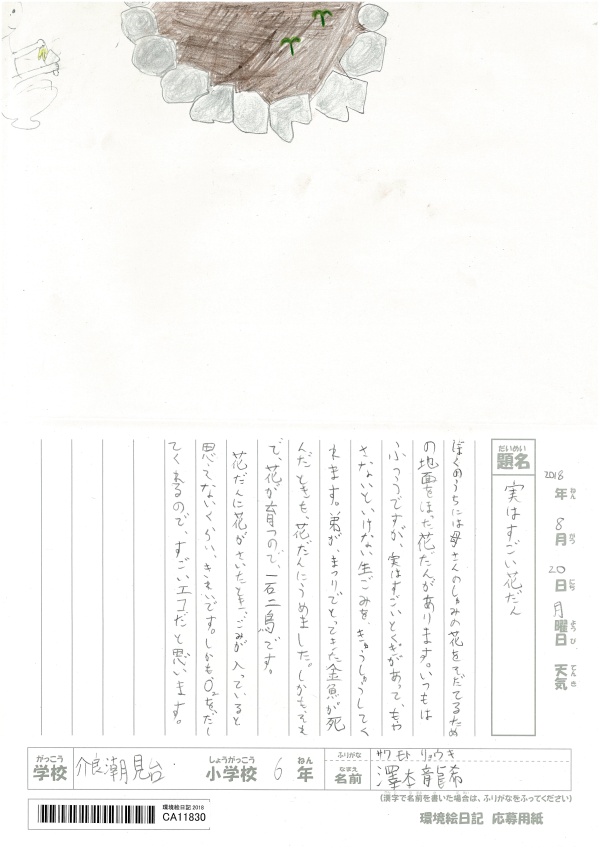 2018年ねん 8月がつ 20日にち 月曜日ようび 天気てんき
だいめい
題名
実はすごい花だん
ぼくのうちには母さんのしゅみの花をそだてるため
の地面をほった花だんがあります。いつもは
ふつうですが、実はすごいとくぎがあって、もや
さないといけない生ごみを、きゅうしゅうしてく
れます。弟が、まつりでとってきた金魚が死
んだときも、花だんにうめました。しかも、それ
で、花が育つので、一石二鳥です。
花だんに花がさいたとき、ごみが入っていると
思えてないくらい、きれいです。しかもO₂を、だし
てくれるので、すごいエコだと思います。
がっこう
学校
介良潮見台
しょうがっこう
小学校
6
ねん
年
ふりがな
サワモト リョウキ
なまえ
名前
澤本龍希
(漢字で名前を書いた場合は、ふりがなをふってください)
環境絵日記 2018
CA11830
環境絵日記 応募用紙